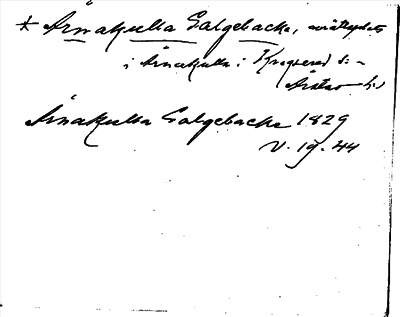 * Årnakulla Galgebacke, avrättsplats
i Årnakulla i Kragered s:n
Årstad hd
Årnakulla Galgebacke 1829
V. 19. 44